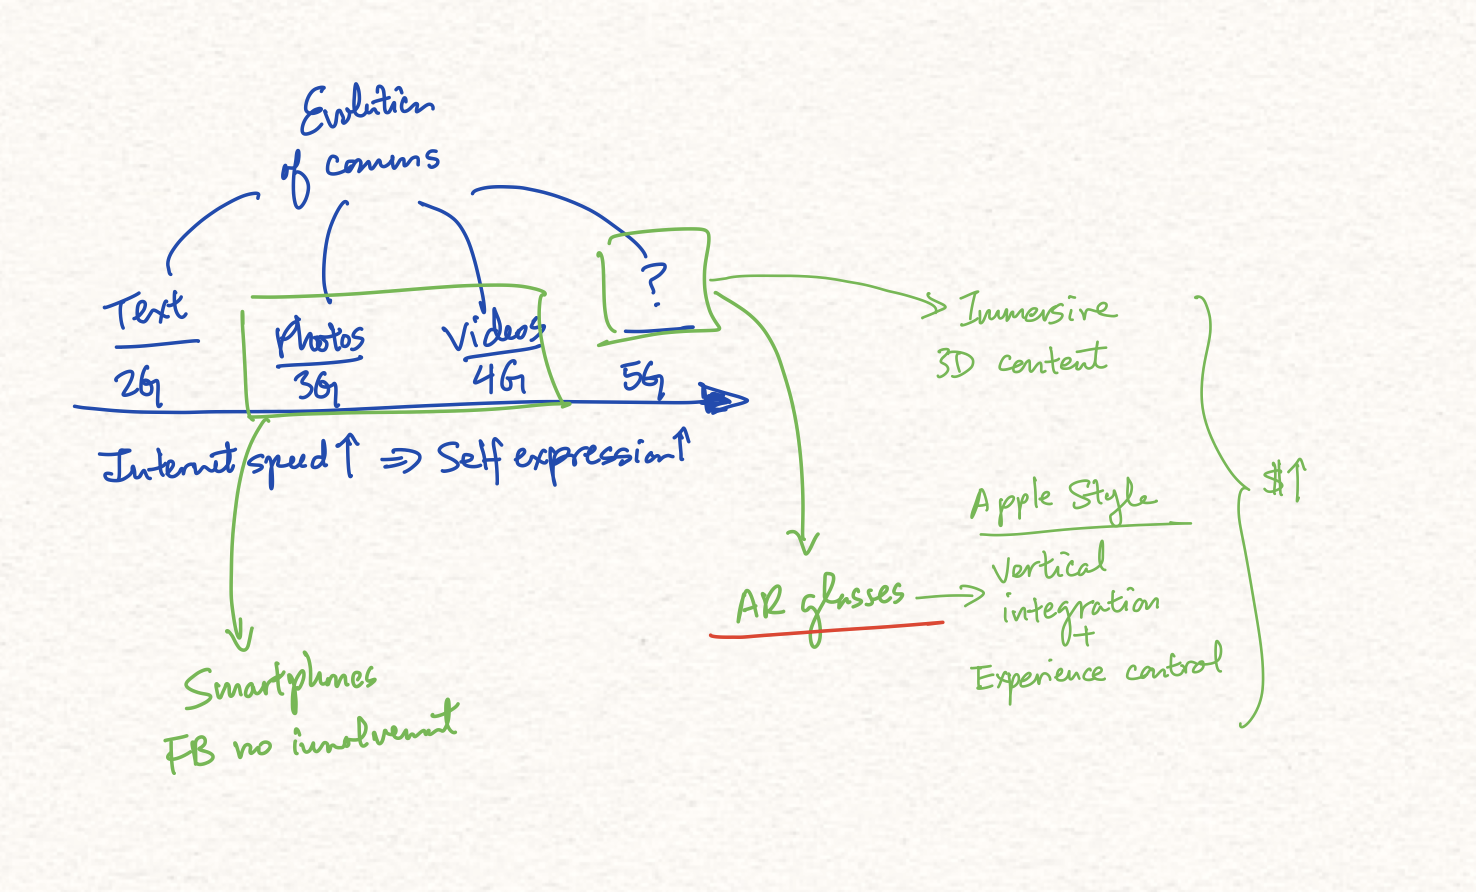 Evolution
of comms
Text
Photos
Videos
?
2G
3G
4G
5G
Internet speed ↑ ⇒ Self expression ↑
Immersive
3D content
Apple Style
Vertical
integration
+
Experience control
$ ↑
AR glasses
Smartphones
FB no involvement